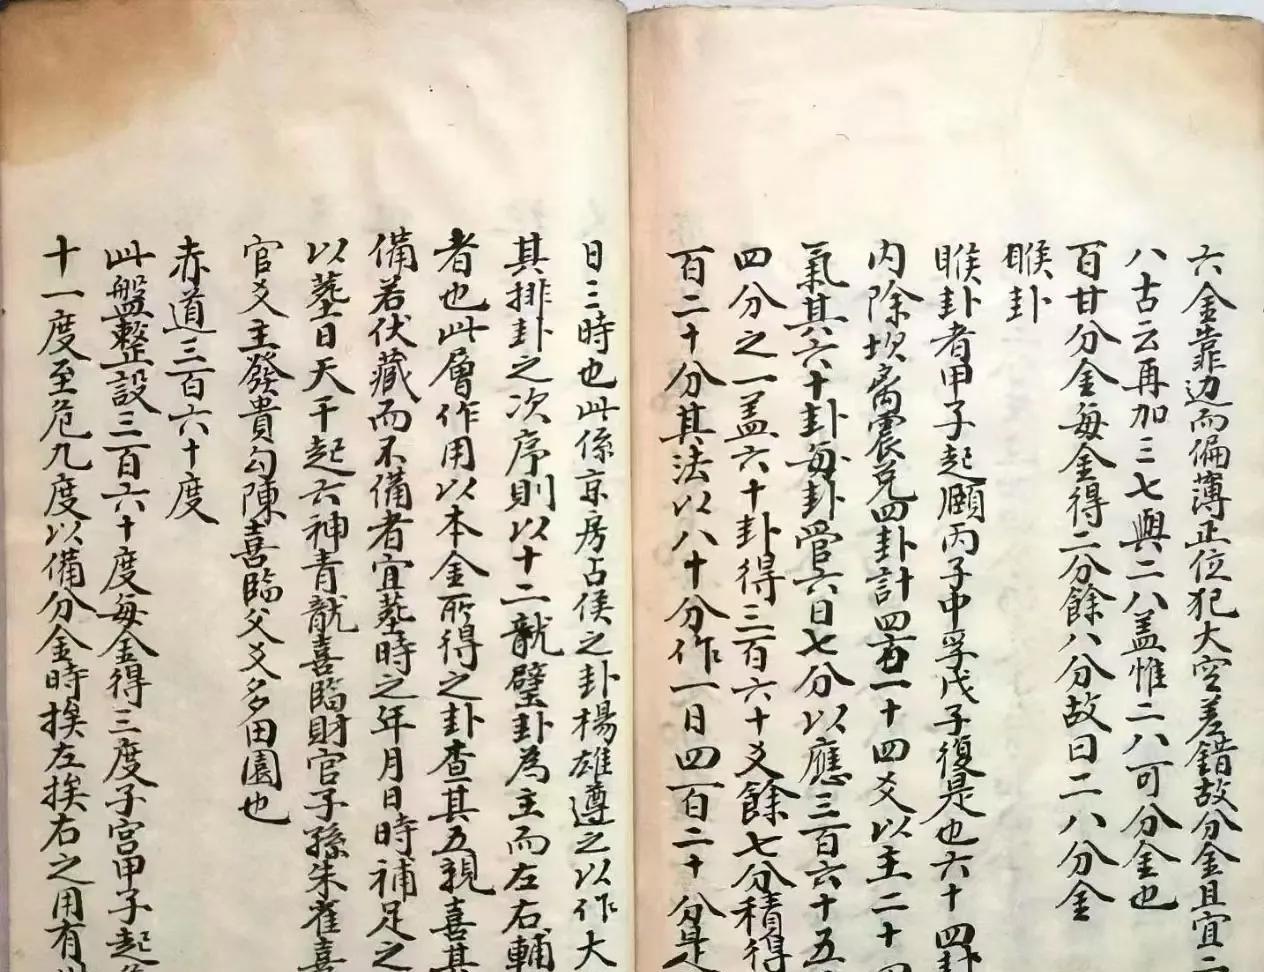 六金靠边而偏薄正位犯大空差錯故分金且宜二
八古云再加三七與二八盖惟二八可分金也
百廿分金每金得二分餘八分故曰二八分金
睺卦
睺卦者甲子起頤丙子中孚戊子復是也六十四卦
内除坎离震兑四卦計四五一十四爻以主二十四
氣其六十卦每卦管六日七分以應三百六十五
四分之一盖六十卦得三百六十爻餘七分積得
百二十分其法以八十分作一日四百二十分是
日三時也此係京房占侯之卦楊雄遵之以作大
其排卦之次序則以十二龍壁卦為主而左右輔
者也此層作用以本金所得之卦查其五親喜其
備若伏藏而不備者宜塟時之年月日時補足之
以塟日天干起六神青龍喜臨財官子孫朱雀喜
官爻主發貴勾陳喜臨父爻多田園也
赤道三百六十度
此盤整設三百六十度每金得三度子宫甲子起
十一度至危九度以備分金時挨左挨右之用有